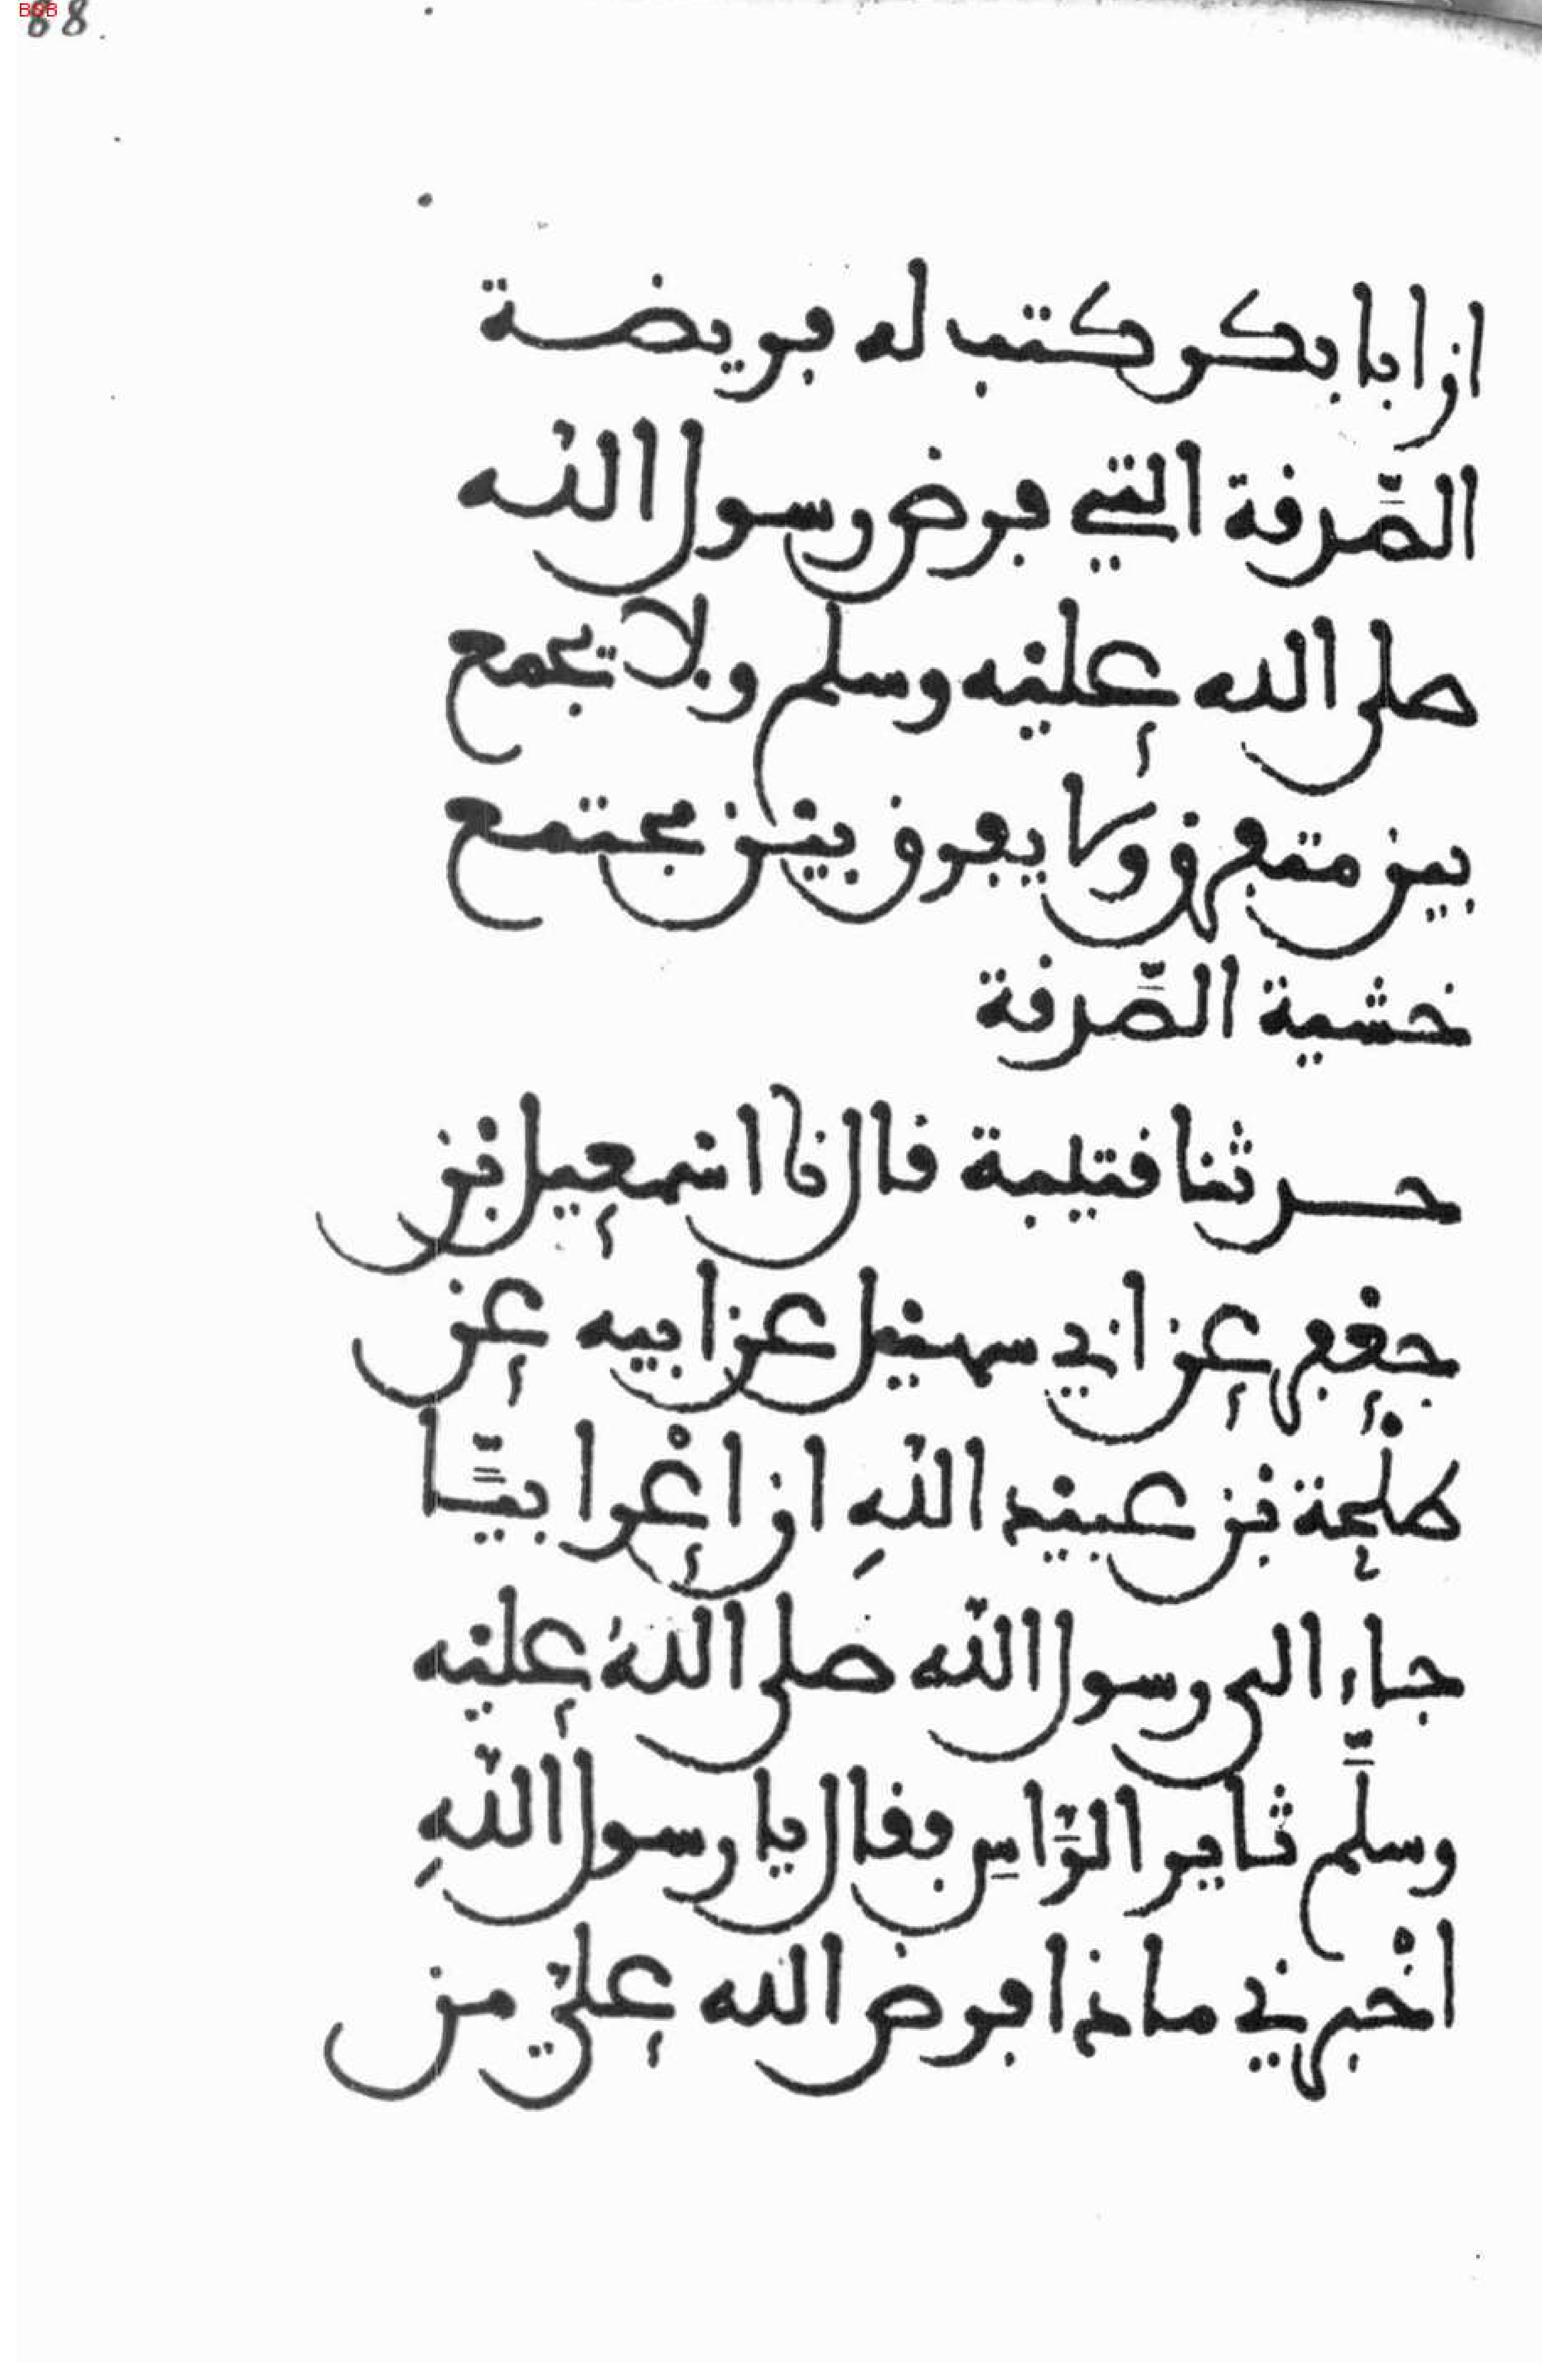 88.
ان ابا بكر كتب له فريضة
الصَّدقة التي فرض رسول الله
صلى الله عليه وسلم ولا تجمع
بين متفرق ولا يفرق بين مجتمع
خشية الصَّدقة
حدثنا قتيبة قال نا اسمعيل بن
جعفر عن ابي سهيل عن ابيه عن
طلْحة بن عبيد اللهِ ان اعْرابيًّا
جاء الى رسول الله صلى اللهُ عليه
وسلَّم ثاير الرَّاسِ فقال يا رسول اللهِ
اخْبرني ماذا فرض الله عليّ من